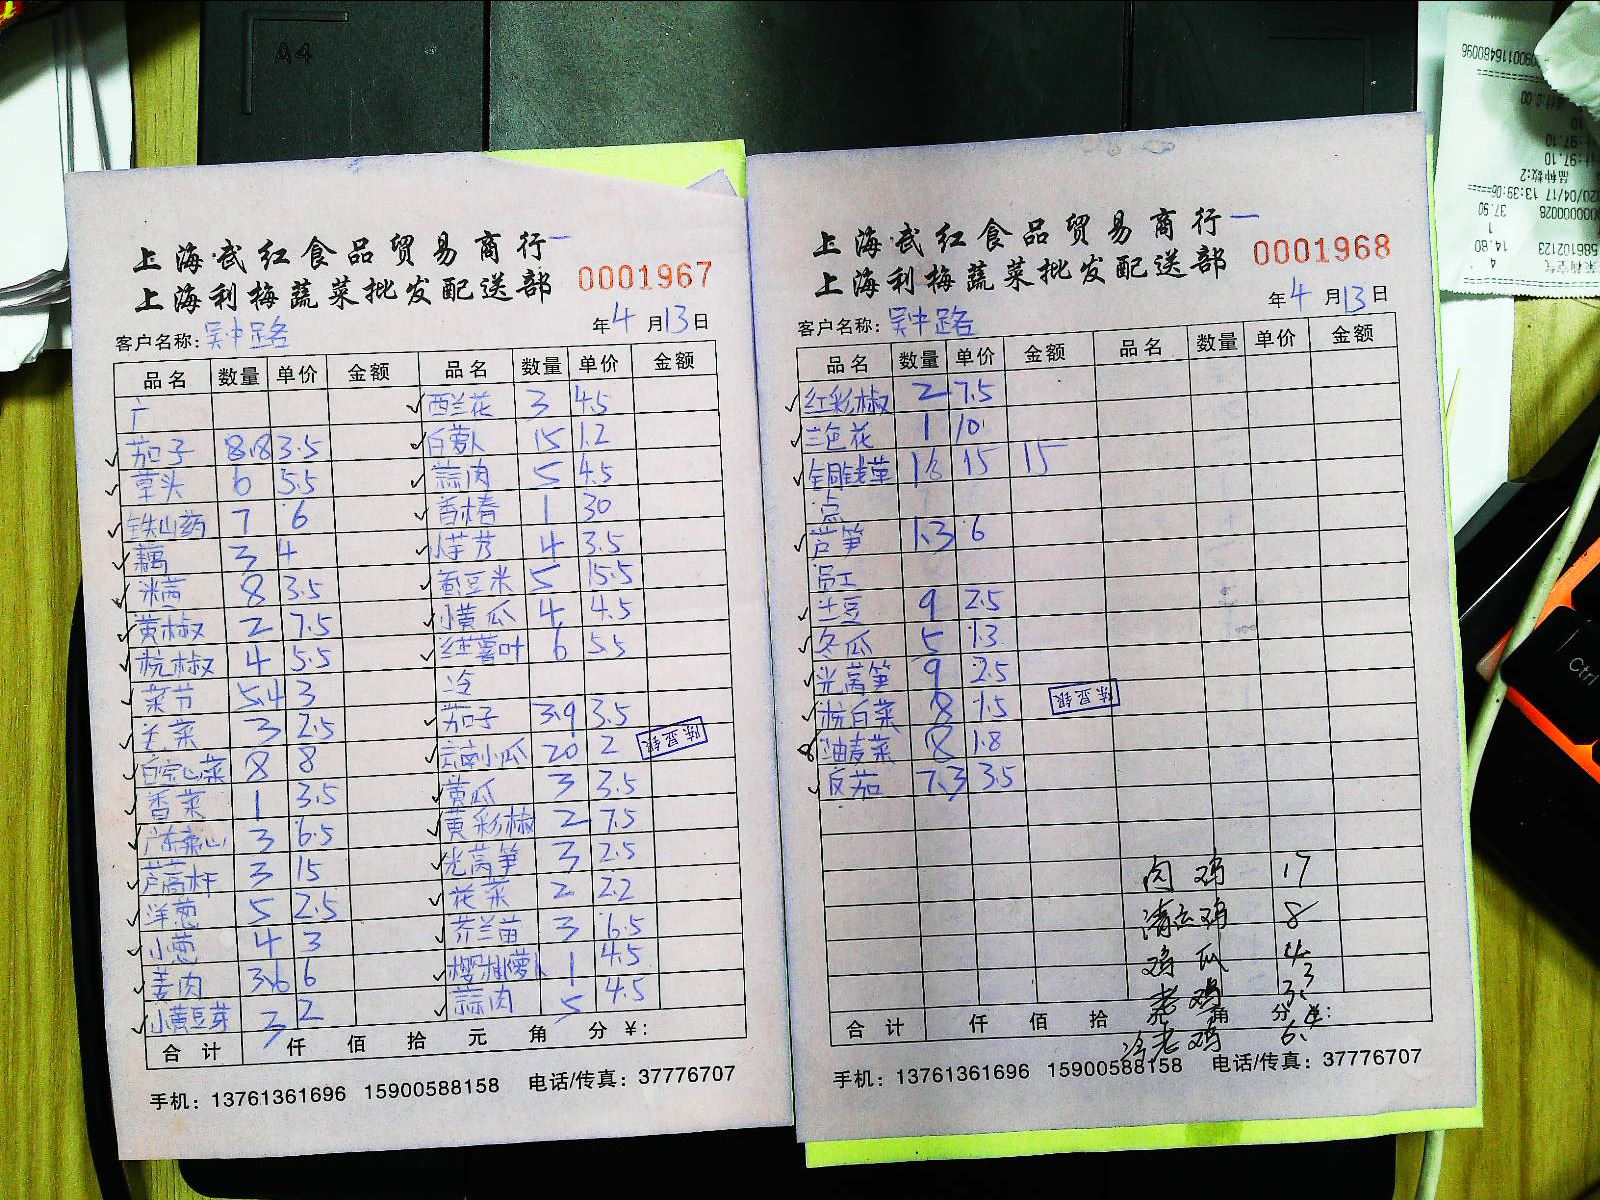 A4
上海武红食品贸易商行
上海利梅蔬菜批发配送部
0001967
客户名称: 吴中路
年4月13日
品名 数量 单价 金额 品名 数量 单价 金额
广 西兰花 3 4.5
茄子 8.8 3.5 白萝卜 15 1.2
草头 6 5.5 蒜肉 5 4.5
铁山药 7 6 香椿 1 30
藕 3 4 小芋艿 4 3.5
米苋 8 3.5 蚕豆米 5 15.5
黄椒 2 7.5 小黄瓜 4 4.5
杭椒 4 5.5 红薯叶 6 5.5
菜节 5.4 3 冷
生菜 3 2.5 茄子 3.9 3.5
8 8 云南小瓜 20 2
香菜 1 3.5 黄瓜 3 3.5
广东菜心 3 6.5 黄彩椒 2 7.5
芦蒿杆 3 15 光莴笋 3 2.5
洋葱 5 2.5 花菜 2 2.2
小葱 4 3 芥兰苗 3 6.5
姜肉 3.6 6 樱桃萝卜 1 4.5
小黄豆芽 3 2 蒜肉 5 4.5
陈显银
合计 仟 佰 拾 元 角 分 ¥:
手机: 13761361696 15900588158 电话/传真: 37776707
上海武红食品贸易商行
上海利梅蔬菜批发配送部
0001968
客户名称: 吴中路
年4月13日
品名 数量 单价 金额 品名 数量 单价 金额
红彩椒 2 7.5
兰色花 1 10
15 15
点
芦笋 1.3 6
员工
土豆 9 2.5
冬瓜 5 1.3
光莴笋 9 2.5
杭白菜 8 1.5
油麦菜 8 1.8
反茄 7.3 3.5
陈显银
肉鸡 17
清远鸡 8
鸡瓜 4
老鸡
冷老鸡
合计 仟 佰 拾 角 分 ¥:
手机: 13761361696 15900588158 电话/传真: 37776707
Ctrl